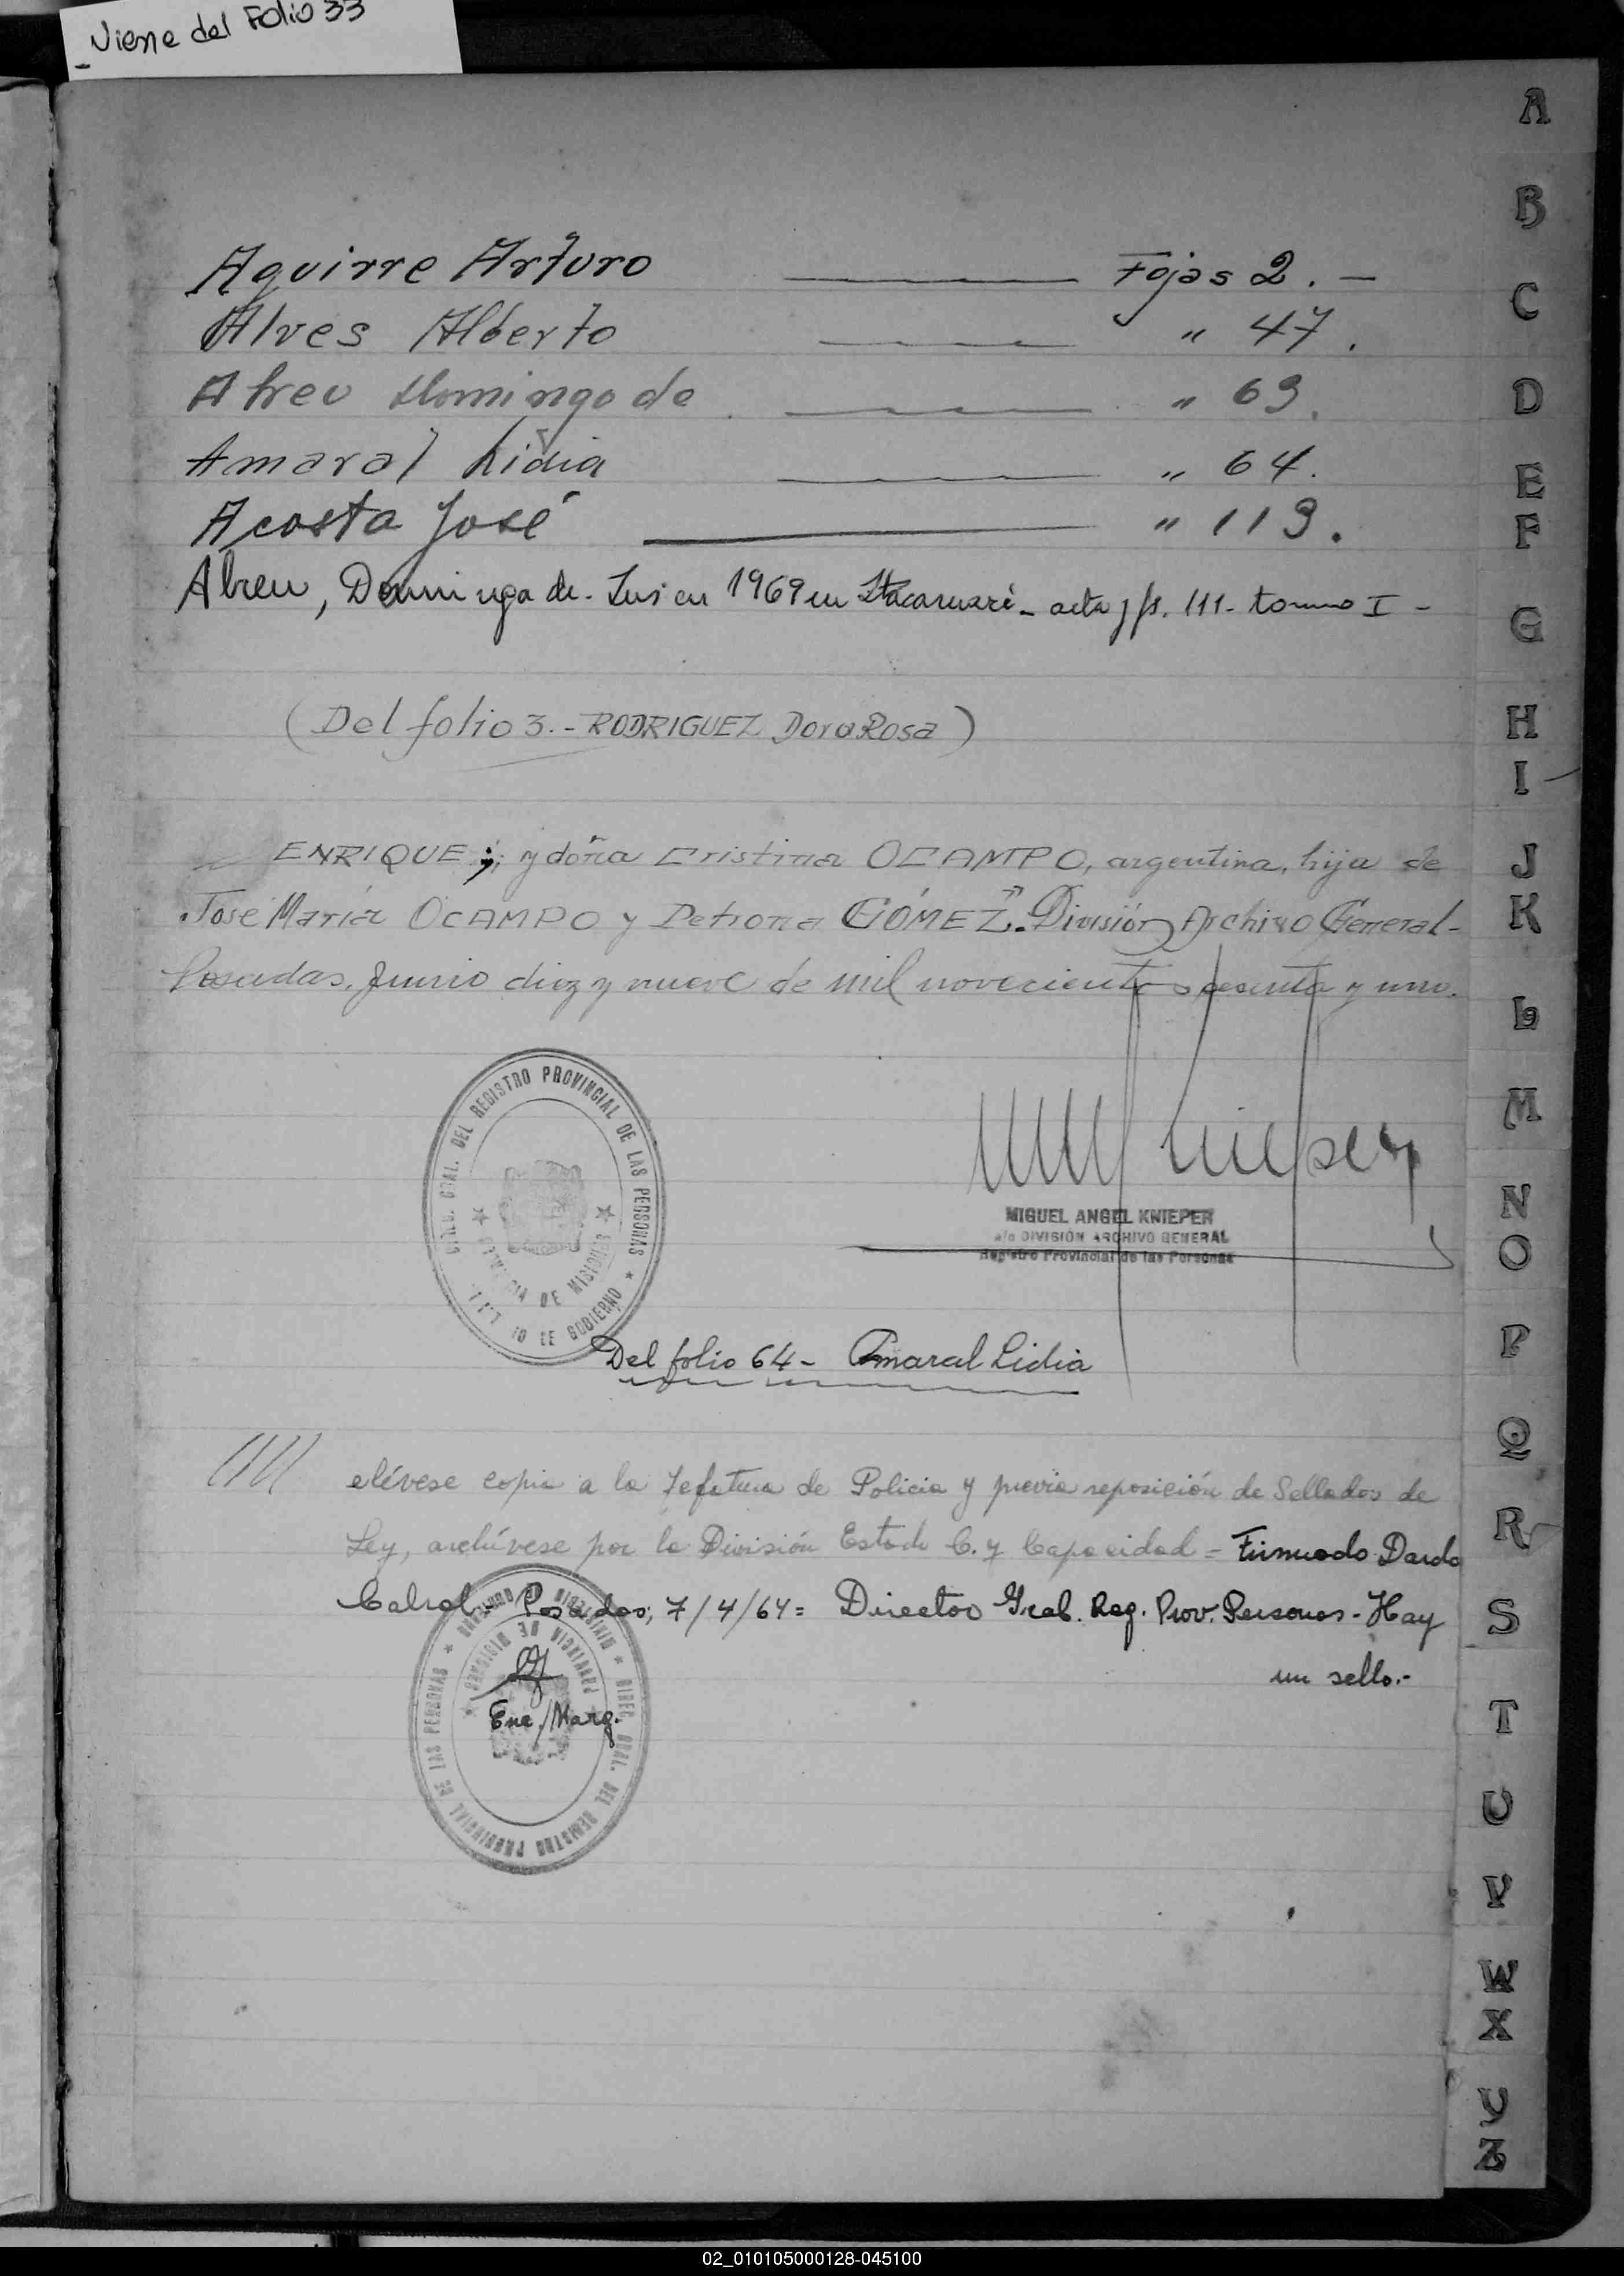 Viene del Folio 33
Aguirre Arturo Fojas 2. -
Alves Alberto " 47.
Abreu Domingo de " 63.
Amaral Lidia " 64.
Acosta José " 113.
Abreu, Dominga de - Ins en 1969 en Itacaruaré - acta y fs. 111 - tomo I -
(Del folio 3. - RODRIGUEZ Dora Rosa)
ENRIQUE; y doña Cristina OCAMPO, argentina, hija de
José María OCAMPO y Petrona GÓMEZ". División Archivo General -
Posadas, Junio diez y nueve de mil novecientos sesenta y uno.
DEL REGISTRO PROVINCIAL DE LAS PERSONAS
DE MISIONES
DE GOBIERNO
MIGUEL ANGEL KNIEPER
a/c DIVISIÓN ARCHIVO GENERAL
Registro Provincial de las Personas
Del folio 64 - Amaral Lidia
//// elévese copia a la Jefatura de Policia y previa reposición de Sellados de
Ley, archívese por la División Estado C. y Capacidad = Firmado Dardo
Cabral - Posadas, 7/4/64 = Director Gral. Reg. Prov. Personas - Hay
un sello.-
Enc./Marg.
DIREC. GRAL. DEL REGISTRO PROVINCIAL DE LAS PERSONAS
PROVINCIA DE MISIONES
A
B
C
D
E
F
G
H
I
J
K
L
M
N
O
P
Q
R
S
T
U
V
W
X
Y
Z
02_010105000128-045100